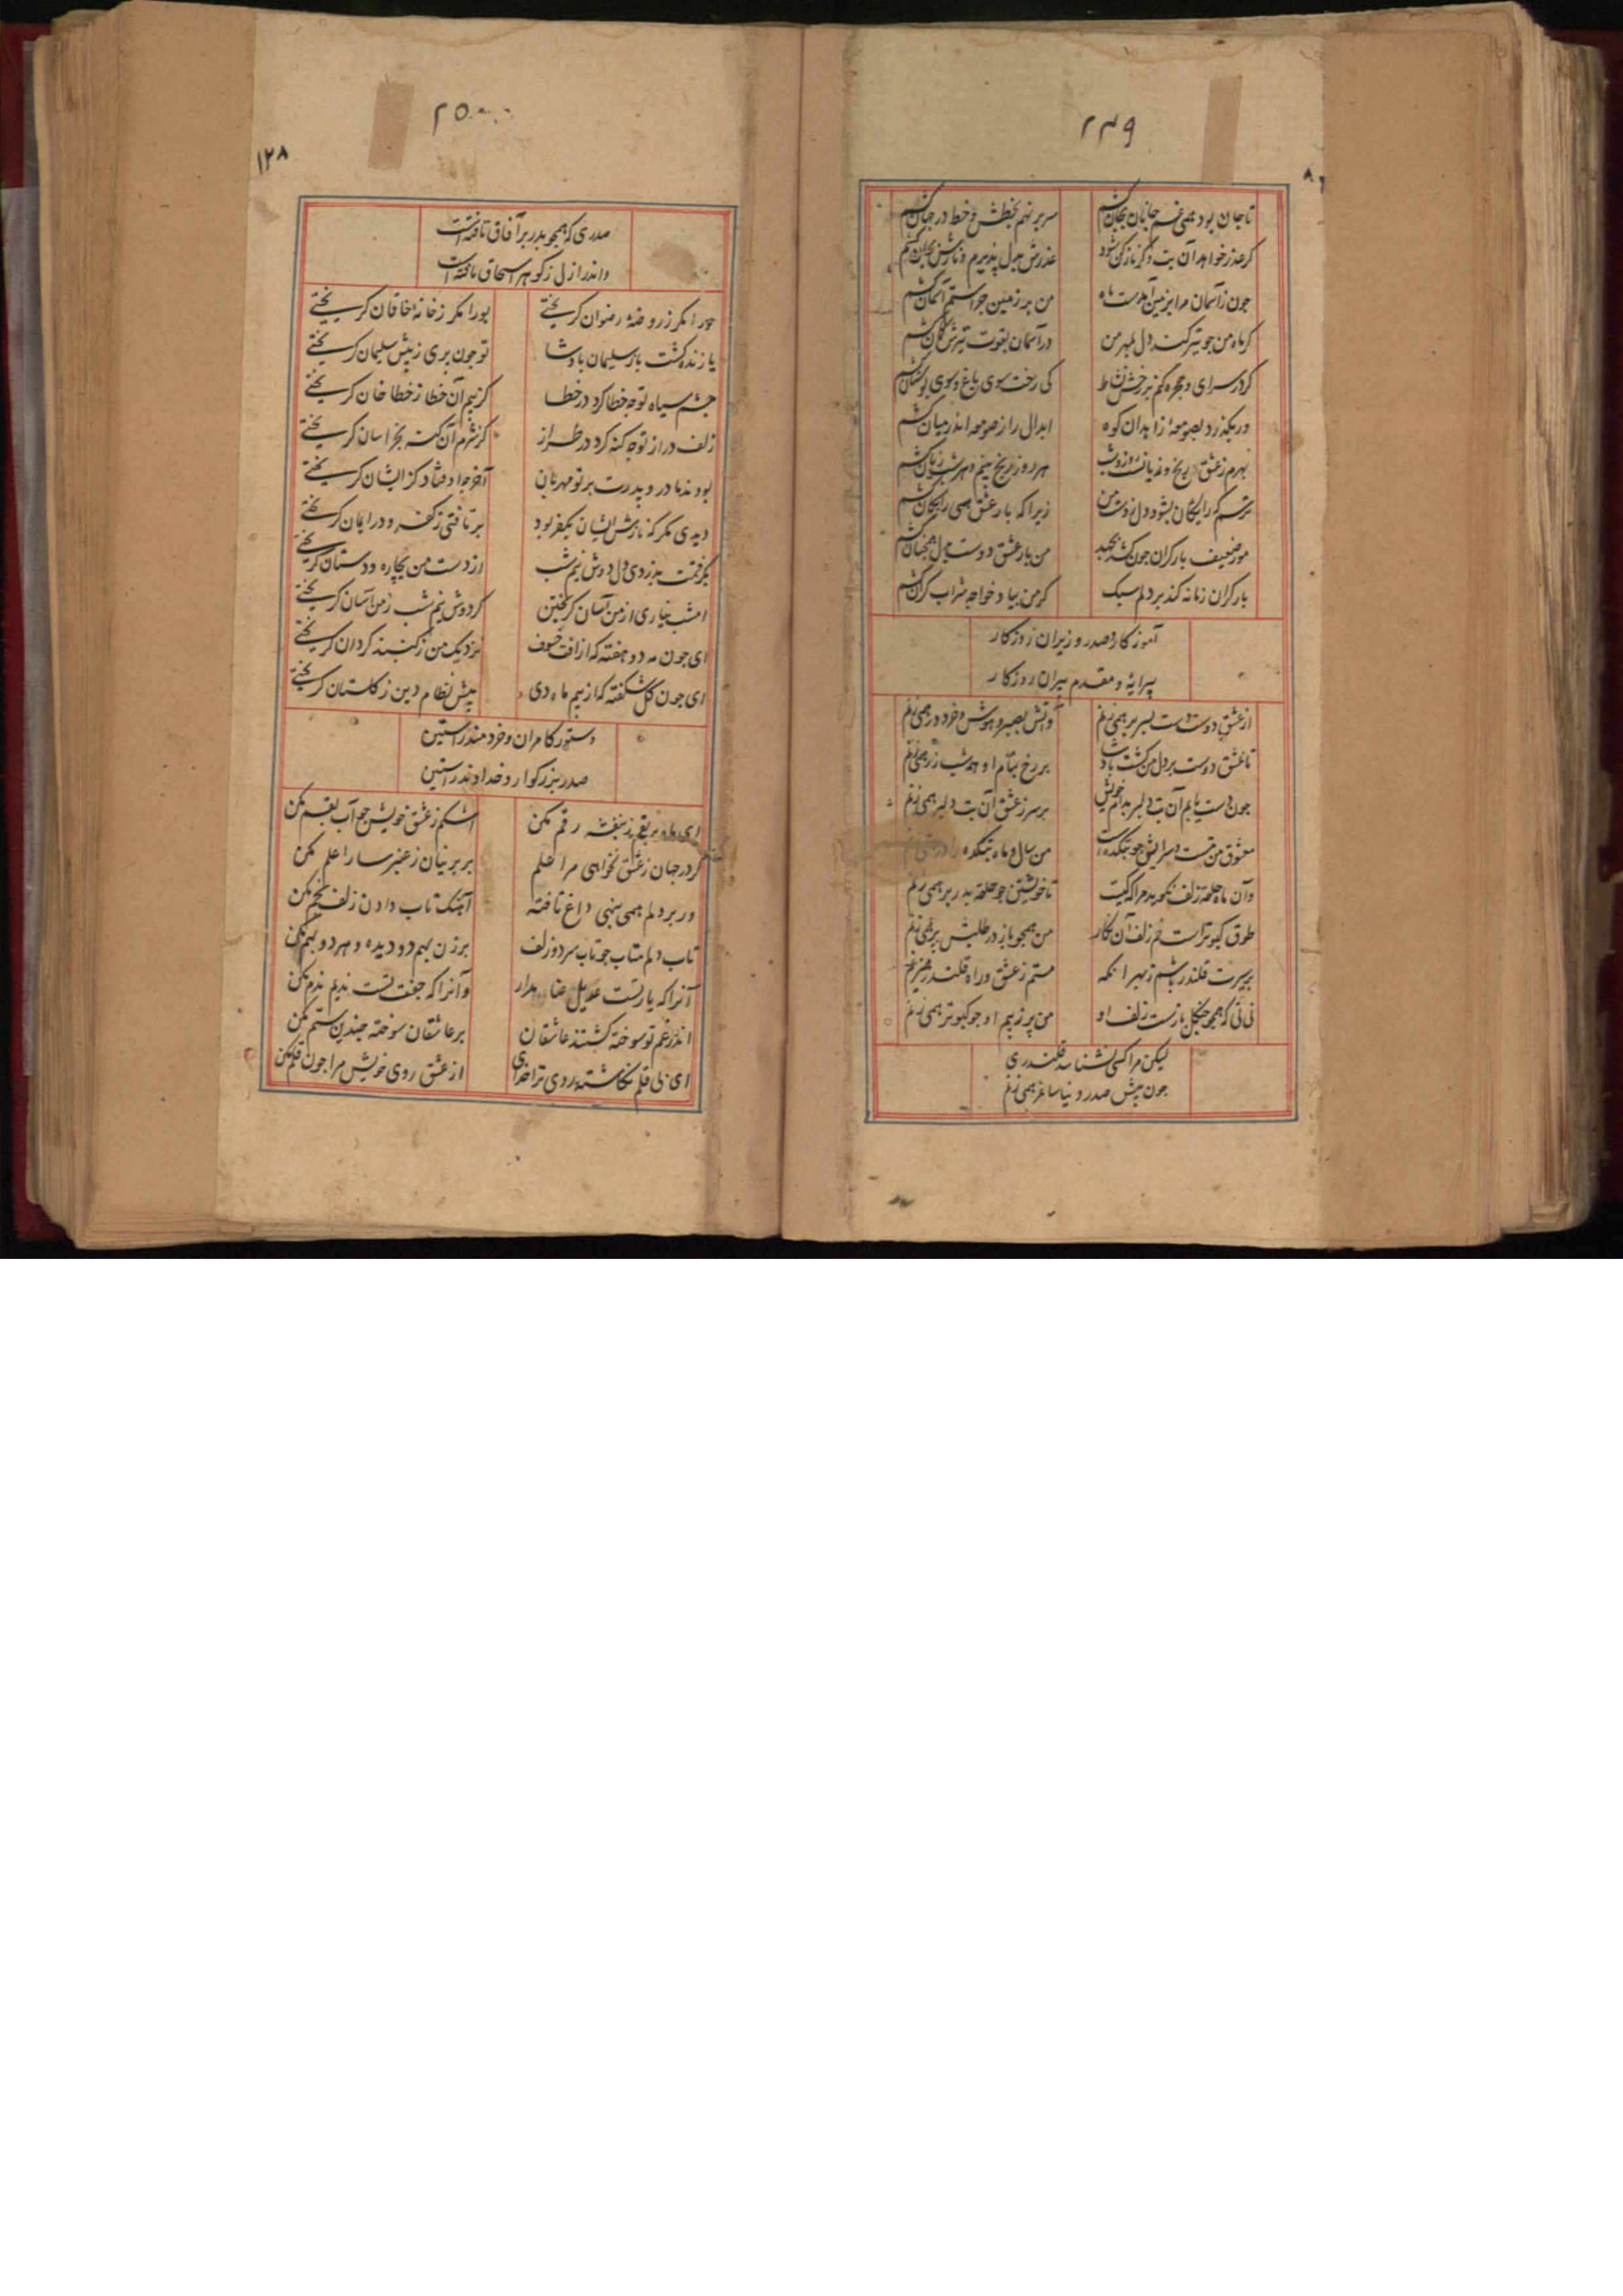 ۲۴۹
تا جان بود همی غم جانان بجان کشم
سر بر نهم بخطش و خط در جهان کشم
کر عذر خواهد آن بت و کر ناز کن شود
عذرش بدل پذیرم و نازش بجان کشم
جون زآسمان مرا بزمین آمدست ماه
من بر زمین جرا ستم آسمان کشم
کر ماه من جو تیر کند دل بمهر من
در آسمان بقوت تیرش کمان کشم
کر در سرای و حجره کم نیز رخش نشاط
کی رخت سوی باغ و سوی بوستان کشم
ور بگذرد بصومعهٔ زاهدان کوه
ابدال را ز صومعه اندر میان کشم
بهرم ز عشق رنج و زیانست روز و شب
هر روز رنج بینم و هر شب زیان کشم
ترسم که رایکان بشود دل ز دست من
زیرا که بار عشق همی رایکان کشم
مور ضعیف بار کران جون کشد بجهد
من بار عشق دوست بدل همجنان کشم
بار کران زمانه کند بر دلم سبک
کر من بیاد خواجه شراب کران کشم
آموزکار صدر وزیران روزکار
پیرایه و مقدم پیران روزکار
از عشق دوست دست بسر بر همی زنم
وآتش بصبر و هوش و خرد در همی زنم
تا عشق دوست بر دل من کشت پادشا
بر رخ بنام او همه شب زر همی زنم
جون دست یابم آن بت دلبر بدام خویش
بر سر ز عشق آن بت دلبر همی زنم
معشوق من بتست و سرایش جو بتکده است
من سال و ماه بتکده را در همی زنم
وآن ماه حلقه زلف نکوید مرا که کیست
تا خویشتن جو حلقه بدر بر همی زنم
طوق کبوتر است خم زلف آن نکار
من همجو باز در طلبش پر همی زنم
بر سیرت قلندر باشم ز بهر آنکه
مستم ز عشق و راه قلندر همی زنم
نی نی که همجو جنکل بازست زلف او
من پر ز بیم او جو کبوتر همی زنم
لیکن مرا کسی نشناسد قلندری
جون پیش صدر دنیا ساغر همی زنم
۲۵۰
۱۲۸
صدری که همجو بدر بر آفاق تافتست
واندر ازل ز کوهر اسحاق یافتست
حورا مکر ز روضهٔ رضوان کریختی
یورا مکر ز خانهٔ خاقان کریختی
یا زنده کشت باز سلیمان پادشا
تو جون پری ز پیش سلیمان کریختی
جشم سیاه تو جه خطا کرد در خطا
کز بیم آن خطا ز خطا خان کریختی
زلف دراز تو جه کنه کرد در طراز
کز شرم آن کنه بخراسان کریختی
بودند مادر و پدرت بر تو مهربان
آخر جه اوفتاد کز ایشان کریختی
دیدی مکر که نازش ایشان بکفر بود
بر تافتی ز کفر و در ایمان کریختی
بکرفتمت بدزدی دل دوش نیم شب
از دست من بجاره و دستان کریختی
امشب نیاری از من آسان کریختن
کر دوش نیم شب ز من آسان کریختی
ای جون مه دو هفته که از آفت خسوف
نزدیک من ز کنبد کردان کریختی
ای جون کل شکفته که از بیم ماه دی
پیش نظام دین ز کلستان کریختی
دستور کامران و خردمند راستین
صدر بزرکوار و خداوند راستین
ای ماه بر بقم ز بنفشه رقم مکن
اشکم ز عشق خویش جو آب بقم مکن
کر در جهان ز عشق نخواهی مرا علم
بر پرنیان ز عنبر سارا علم مکن
ور بر دلم همی ننهی داغ تافته
آهنک تاب دادن زلف بخم مکن
تاب دلم متاب جو تاب سر دو زلف
بر زن بهم دو دیده و هر دو بهم مکن
آنرا که یار تست عدیل عنا مدار
وآنرا که جفت تست ندیم ندم مکن
اندر غم تو سوخته کشتند عاشقان
بر عاشقان سوخته جندین ستم مکن
ای بی قلم نکاشته روی ترا خدای
از عشق روی خویش مرا جون قلم مکن